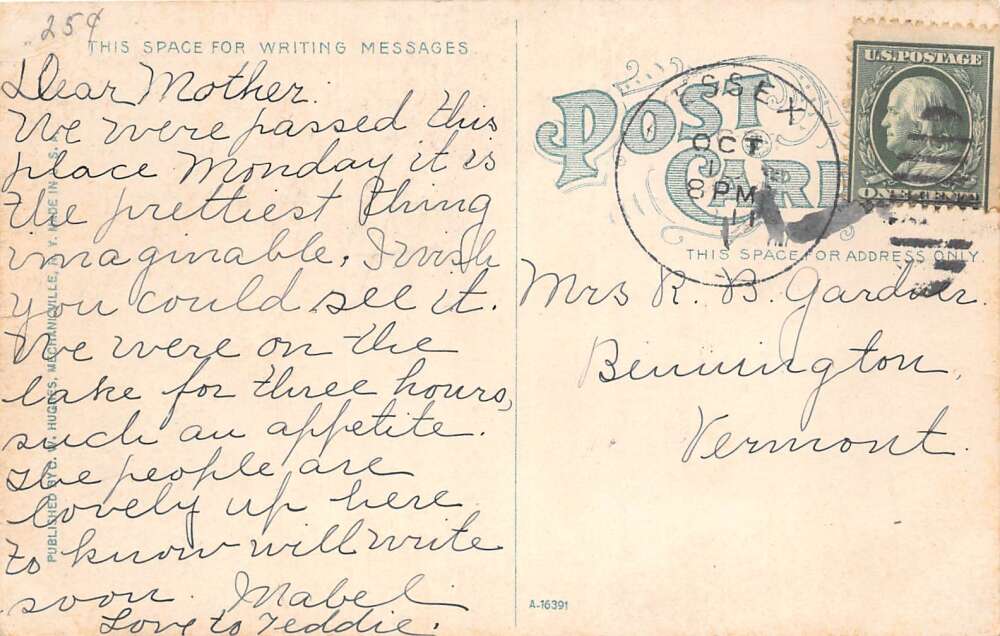 25¢
THIS SPACE FOR WRITING MESSAGES
Dear Mother.
We were passed this
place Monday it is
the prettiest thing
imaginable. I wish
you could see it.
We were on the
lake for three hours,
such an appetite.
The people are
lovely up here
to know will write
soon. Mabel
Love to Teddie.
PUBLISHED BY C. W. HUGHES, MECHANICVILLE, N. Y. MADE IN U. S. A.
POST CARD
ESSEX
OCT
1
8 PM
11
U.S. POSTAGE
ONE CENT
THIS SPACE FOR ADDRESS ONLY.
Mrs R. B. Gardner.
Bennington,
Vermont.
A-16391